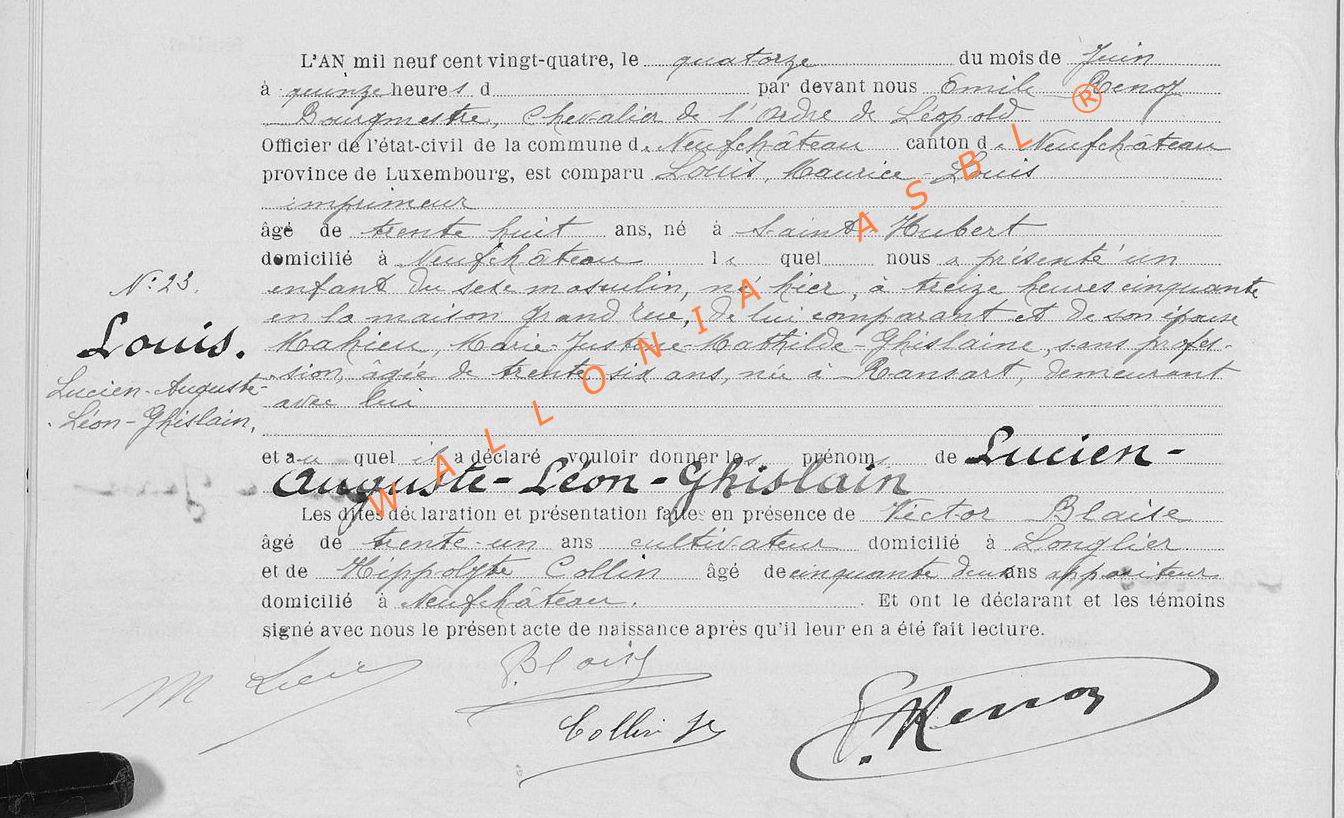 L'AN mil neuf cent vingt-quatre, le quatorze du mois de Juin
à quinze heures d par devant nous Emile Renoy
Bourgmestre, Chevalier de l'Ordre de Léopold
Officier de l'état-civil de la commune de Neufchâteau canton de Neufchâteau
province de Luxembourg, est comparu Louis, Maurice-Louis
imprimeur
âgé de trente huit ans, né à Saint Hubert
domicilié à Neufchâteau le quel nous a présenté un
enfant du sexe masculin, né hier, à treize heures cinquante
en la maison Grand'rue, de lui comparant et de son épouse
Mahieu, Marie-Justine-Mathilde-Ghislaine, sans profes-
sion, agée de trente six ans, née à Ransart, demeurant
avec lui
et au quel il a déclaré vouloir donner les prénoms de Lucien-
Auguste-Léon-Ghislain
Les dites déclaration et présentation faites en présence de Victor Blaise
âgé de trente-un ans cultivateur domicilié à Longlier
et de Hippolyte Collin âgé de cinquante deux ans appariteur
domicilié à Neufchâteau. Et ont le déclarant et les témoins
signé avec nous le présent acte de naissance après qu'il leur en a été fait lecture.
N° 23.
Louis.
Lucien-Auguste-
Léon-Ghislain.
M Blaise
Collin
E. Renoy
WALLONIA ASBL ®